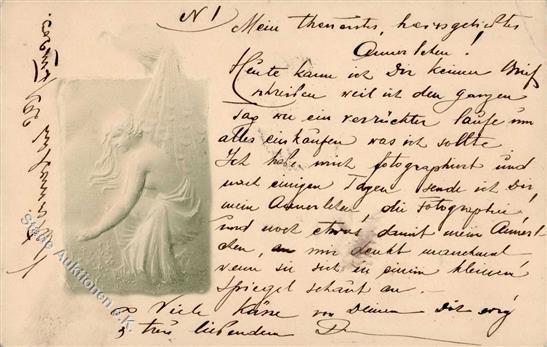 N 1
Mein theuerstes, heissgeliebtes
Annerlchen!
Heute kann ich Dir keinen Brief
schreiben weil ich den ganzen
Tag wie ein verrückter laufe um
alles einkaufen was ich sollte
Ich habe mich fotographiert und
nach einigen Tagen sende ich Dir,
mein Annerlchen, die Fotographie,
und noch etwas, damit mein Annerl-
chen, an mir denkt manchmal,
wenn sie sich in einem kleinen
Spiegel schaut an.
Viele Küsse von Deinem Dich ewig
treu liebenden
Städte Auktionen e.K.